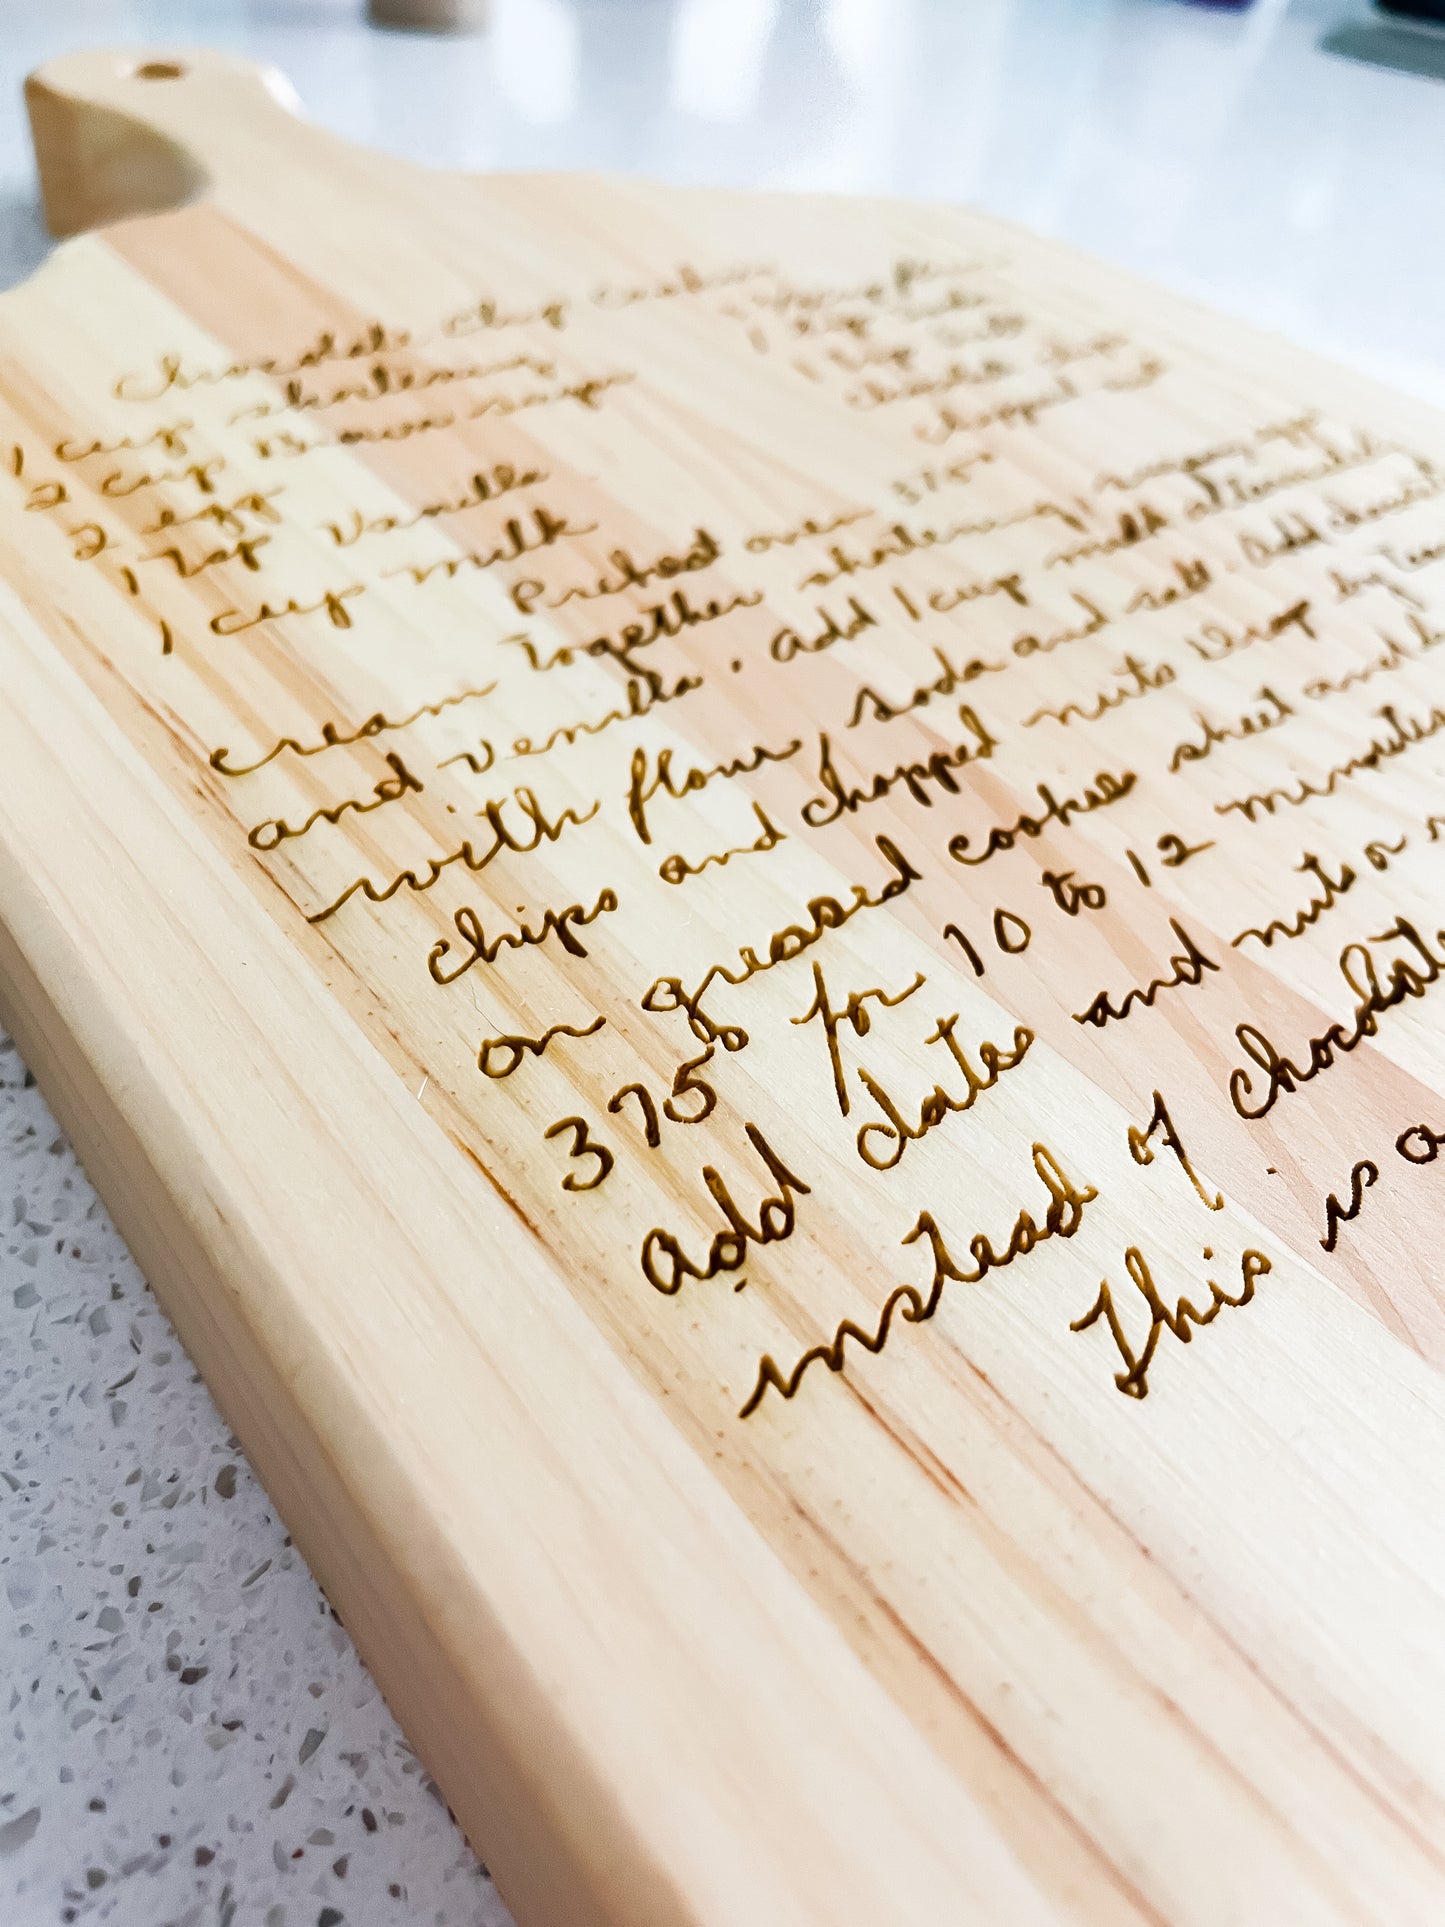 Chocolate Chip Cookies
1 cup shortening
2 cup Brown sugar
2 egg
1 Tsp Vanilla
1 cup milk
1 tsp soda
1 tsp salt
chocolate chips
chopped nuts
Preheat oven 375°
cream together shortening, sugar, eggs
and venilla. add 1 cup milk alternately
with flour, soda and salt. add chocolate
chips and chopped nuts Drop by
on greased cookie sheet and
375° for 10 to 12 minutes
add dates and nuts or
instead of chocolate
This is a